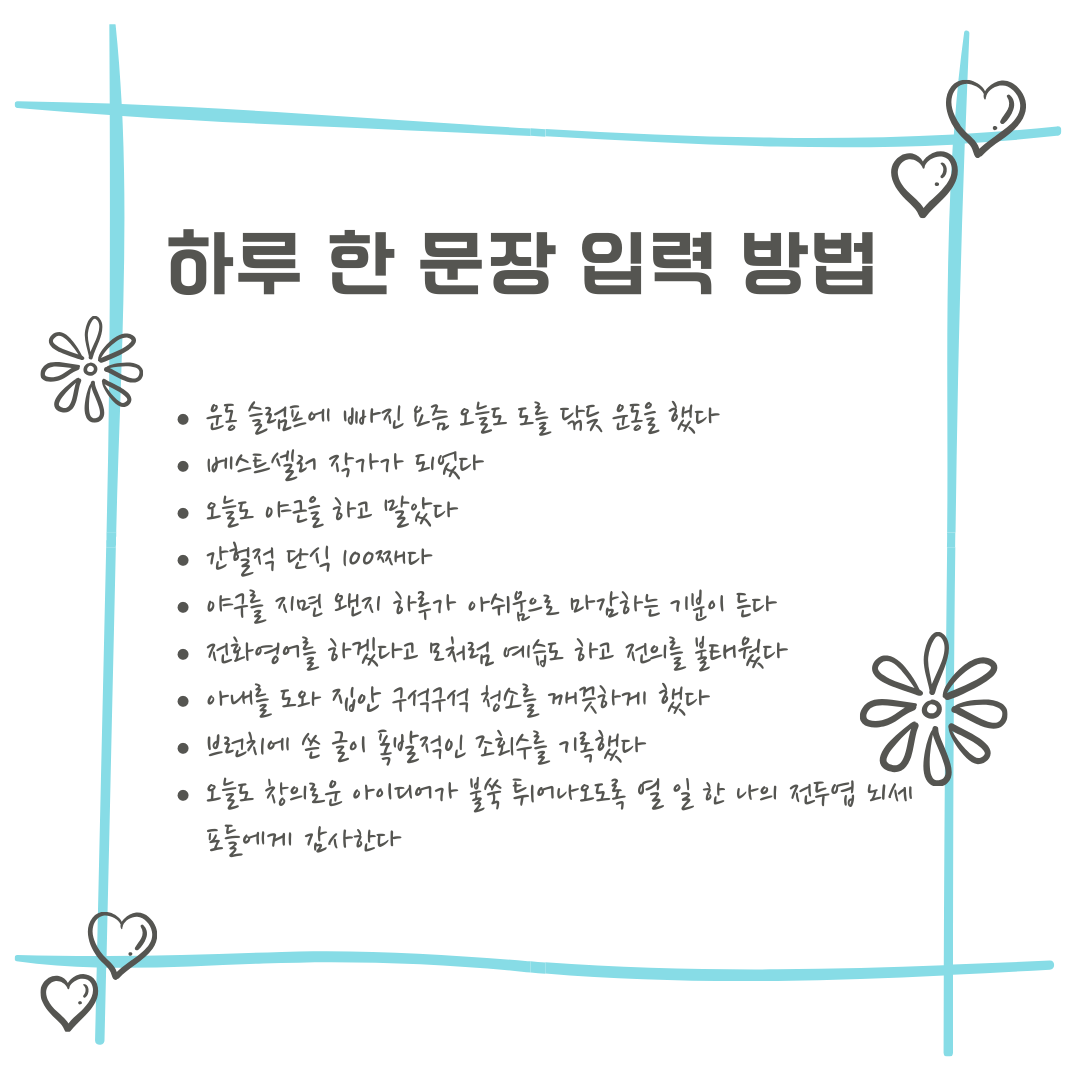 하루 한 문장 입력 방법
• 운동 슬럼프에 빠진 요즘 오늘도 도를 닦듯 운동을 했다
• 베스트셀러 작가가 되었다
• 오늘도 야근을 하고 말았다
• 간헐적 단식 100째다
• 야구를 지면 왠지 하루가 아쉬움으로 마감하는 기분이 든다
• 전화영어를 하겠다고 모처럼 예습도 하고 전의를 불태웠다
• 아내를 도와 집안 구석구석 청소를 깨끗하게 했다
• 브런치에 쓴 글이 폭발적인 조회수를 기록했다
• 오늘도 창의로운 아이디어가 불쑥 튀어나오도록 열 일 한 나의 전두엽 뇌세
포들에게 감사한다